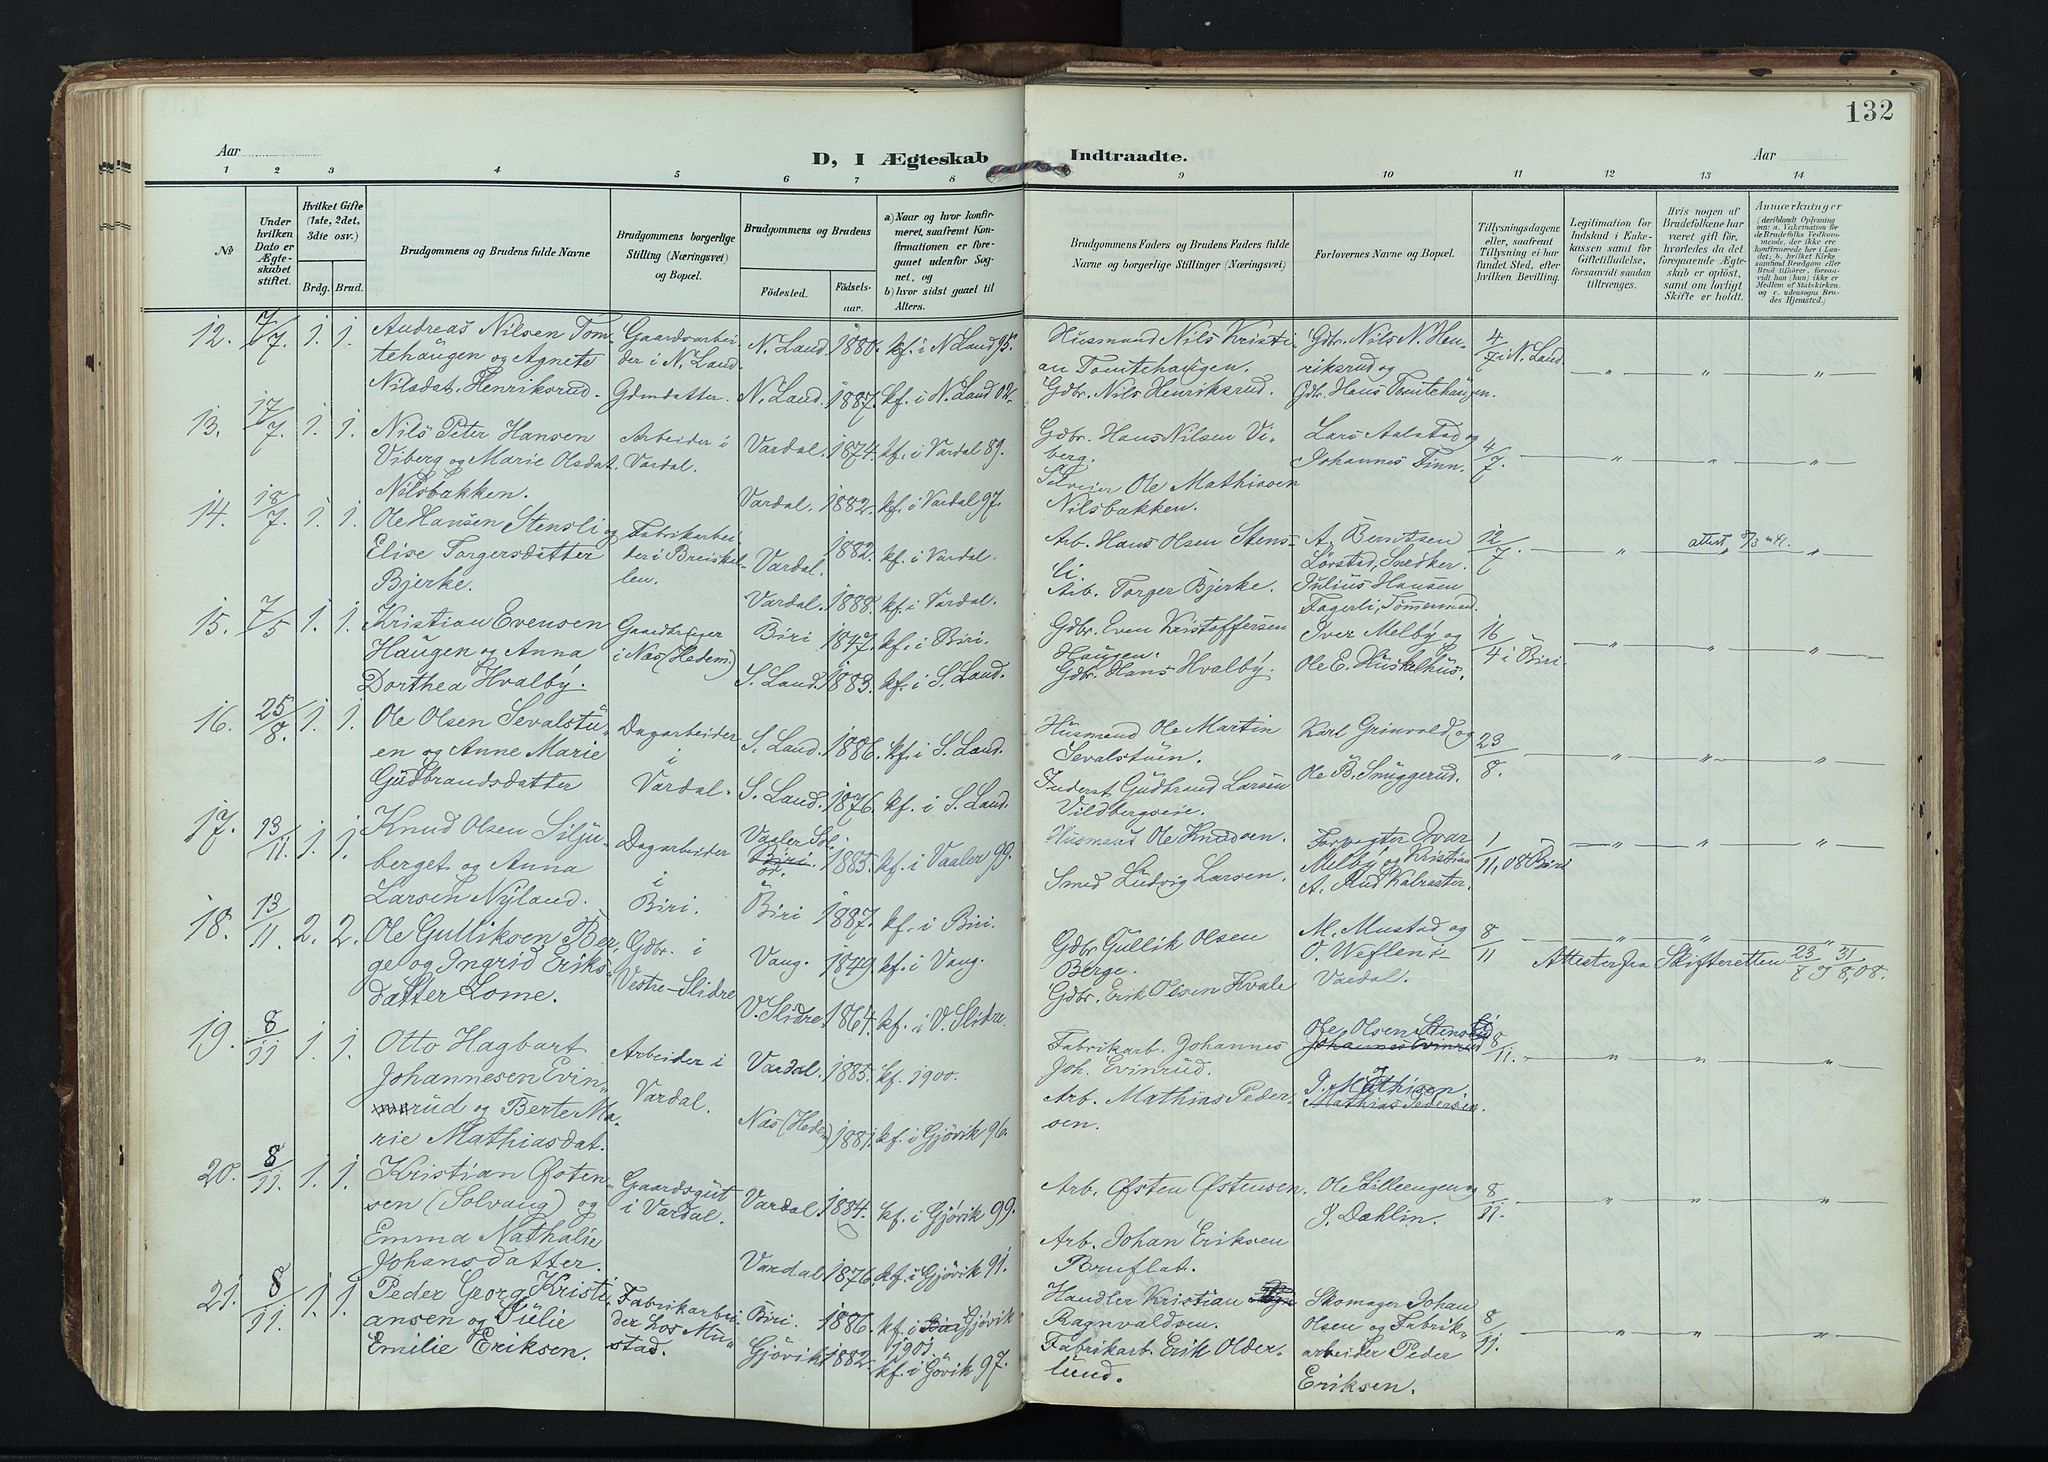 132
Aar
D, I Ægteskab
Indtraadte.
Aar
1 2 3 4 5 6 7 8 9 10 11 12 13 14
No
Under hvilken Dato er Ægteskabet stiftet.
Hvilket Gifte (1ste, 2det, 3die osv.)
Brdg. Brud.
Brudgommens og Brudens fulde Navne
Brudgommens borgerlige Stilling (Næringsvei) og Bopæl.
Brudgommens og Brudens
Fødested. Fødselsaar.
a) Naar og hvor konfirmeret, saafremt Konfirmationen er foregaaet udenfor Sognet, og
b) hvor sidst gaaet til Alters.
Brudgommens Faders og Brudens Faders fulde Navne og borgerlige Stillinger (Næringsvei)
Forlovernes Navne og Bopæl.
Tillysningsdagene eller, saafremt Tillysning ei har fundet Sted, efter hvilken Bevilling.
Legitimation for Indskud i Enkekassen samt for Giftetilladelse, forsaavidt saadan tiltrænges.
Hvis nogen af Brudefolkene har været gift før, hvorledes da det foregaaende Ægteskab er opløst, samt om lovligt Skifte er holdt.
Anmærkninger
(deriblandt Oplysning om: a. Vakcination for de Brudefolks Vedkommende, der ikke ere konfirmerede her i Landet; b. hvilket Kirkesamfund Brudgom eller Brud tilhører, forsaavidt han (hun) ikke er Medlem af Statskirken, og c. udensogns Brudes Hjemsted.)
12. 7/7. 1. 1. Andreas Nilsen Tom-
tehaugen og Agnete
Nilsdat. Henriksrud.
Gaardsarbei-
der i N. Land.
Gdmdatter.
N. Land. 1880. kf. i N Land 95.
N. Land. 1887. kf. i N. Land 02.
Husmand Nils Kristi-
an Tomtehaugen.
Gdbr. Nils Henriksrud.
Gdbr. Nils N. Hen-
riksrud og
Gdbr. Hans Tomtehaugen.
4/7 i N. Land. — " — " — "
13. 17/7. 1. 1. Nils Peter Hansen
Viberg og Marie Olsdat.
Nilsbakken.
Arbeider i
Vardal.
Vardal. 1874. kf. i Vardal 89.
Vardal. 1882. kf. i Vardal 97.
Gdbr. Hans Nilsen Vi-
berg.
Selveier Ole Mathiasen
Nilsbakken.
Lars Aalstad og
Johannes Finn.
4/7. — " — " — " —
14. 18/7. 1. 1. Ole Hansen Stensli og
Elise Torgersdatter
Bjerke.
Fabrikarbei-
der i Breiskal-
len.
Vardal. 1882. kf. i Vardal.
Vardal. 1888. kf. i Vardal.
Arb. Hans Olsen Stens-
li.
Arb. Torger Bjerke.
A. Berntsen
Lørstad, Snedker.
Julius Hansen
Fagerli, Tømmermand.
12/7. — " — attest 3/3 - 41. — " —
15. 7/5 1. 1. Kristian Evensen
Haugen og Anna
Dorthea Hvalby.
Gaardbruger
i Næs (Hedem.)
Biri 1847. kf. i Biri.
S. Land. 1883. kf. i S. Land.
Gdbr. Even Kristoffersen
Haugen.
Gdbr. Hans Hvalby.
Iver Melby og
Ole E. Kiskelhus.
16/4 i Biri. — " — " — " —
16. 25/8. 1. 1. Ole Olsen Sevalstu-
en og Anne Marie
Gudbrandsdatter
Dagarbeider
i
Vardal.
S. Land. 1886. kf. i S. Land.
S. Land. 1876. kf. i S. Land.
Husmand Ole Martin
Sevalstuen.
Inderst Gudbrand Larsen
Vildbergseie.
Karl Grinvold og
Ole B. Snuggerud.
23/8. — " — " — " —
17. 13/11. 1. 1. Knud Olsen Silju-
berget og Anna
Larsen Nyland.
Dagarbeider
i
Biri.
Vaaler Sol.
Biri. 1885. kf. i Vaaler 99.
Biri 1887. kf. i Biri.
Husmand Ole Knudsen.
Smed Ludvig Larsen.
Forpagter Ivar
Melby og Kristian
A. Rud
1/11, 08 Biri — " — " — " —
18. 13/11. 2. 2. Ole Gulliksen Ber-
ge og Ingrid Eriks-
datter Lome.
Gdbr. i
Vestre-Slidre
Vang. 1849. kf. i Vang.
V. Slidre. 1864. kf. i V. Slidre.
Gdbr. Gullik Olsen
Berge.
Gdbr. Erik Olsen Kvale
M. Mustad og
O. Weflen i
Vardal.
8/11 — " — " — "
Attester fra Skifteretten 23/8 og 31/8, 08.
19. 8/11 1. 1. Otto Hagbart
Johannesen Evin-
rud og Berte Ma-
rie Mathiasdat.
Arbeider i
Vardal.
Vardal. 1885. kf. 1900.
Næs (Hedem) 1881. kf. i Gjövik 96.
Fabrikarb. Johannes
Joh. Evinrud.
Arb. Mathias Peder-
sen.
Ole Olsen Stensli
Johannes Evinrud
og
J. Mathisen
Mathias Pedersen.
8/11. — " — " — "
20. 8/11. 1. 1. Kristian Østen-
sen (Solvang) og
Emma Nathalie
Johansdatter.
Gaardsgut
i Vardal.
Vardal. 1884. kf. i Gjövik 99.
Vardal 1876. kf. i Gjövik 91.
Arb. Østen Østensen.
Arb. Johan Eriksen
Bruflat.
Ole Lilleengen og
J. Dæhlin.
8/11. — " — " — " —
21. 8/11. 1. 1. Peder Georg Kristi-
ansen og Julie
Emilie Eriksen.
Fabrikarbei-
der hos Mu-
stad.
Biri. 1886. kf. i Gjøvik
1901.
Gjövik 1882. kf. i Gövik 97.
Handler Kristian
Ragnvaldsen.
Fabrikarb. Erik Older-
lund.
Skomager Johan
Olsen og Fabrik-
arbeider Peder
Eriksen.
8/11. — " — " — " —